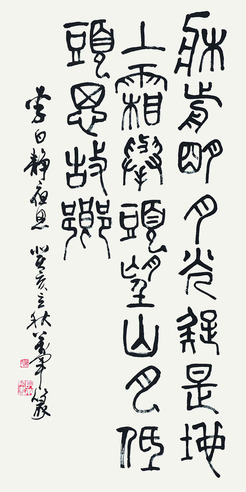 牀前明月光疑是地
上霜舉頭望山月低
頭思故鄉
李白靜夜思 癸亥立秋 篆